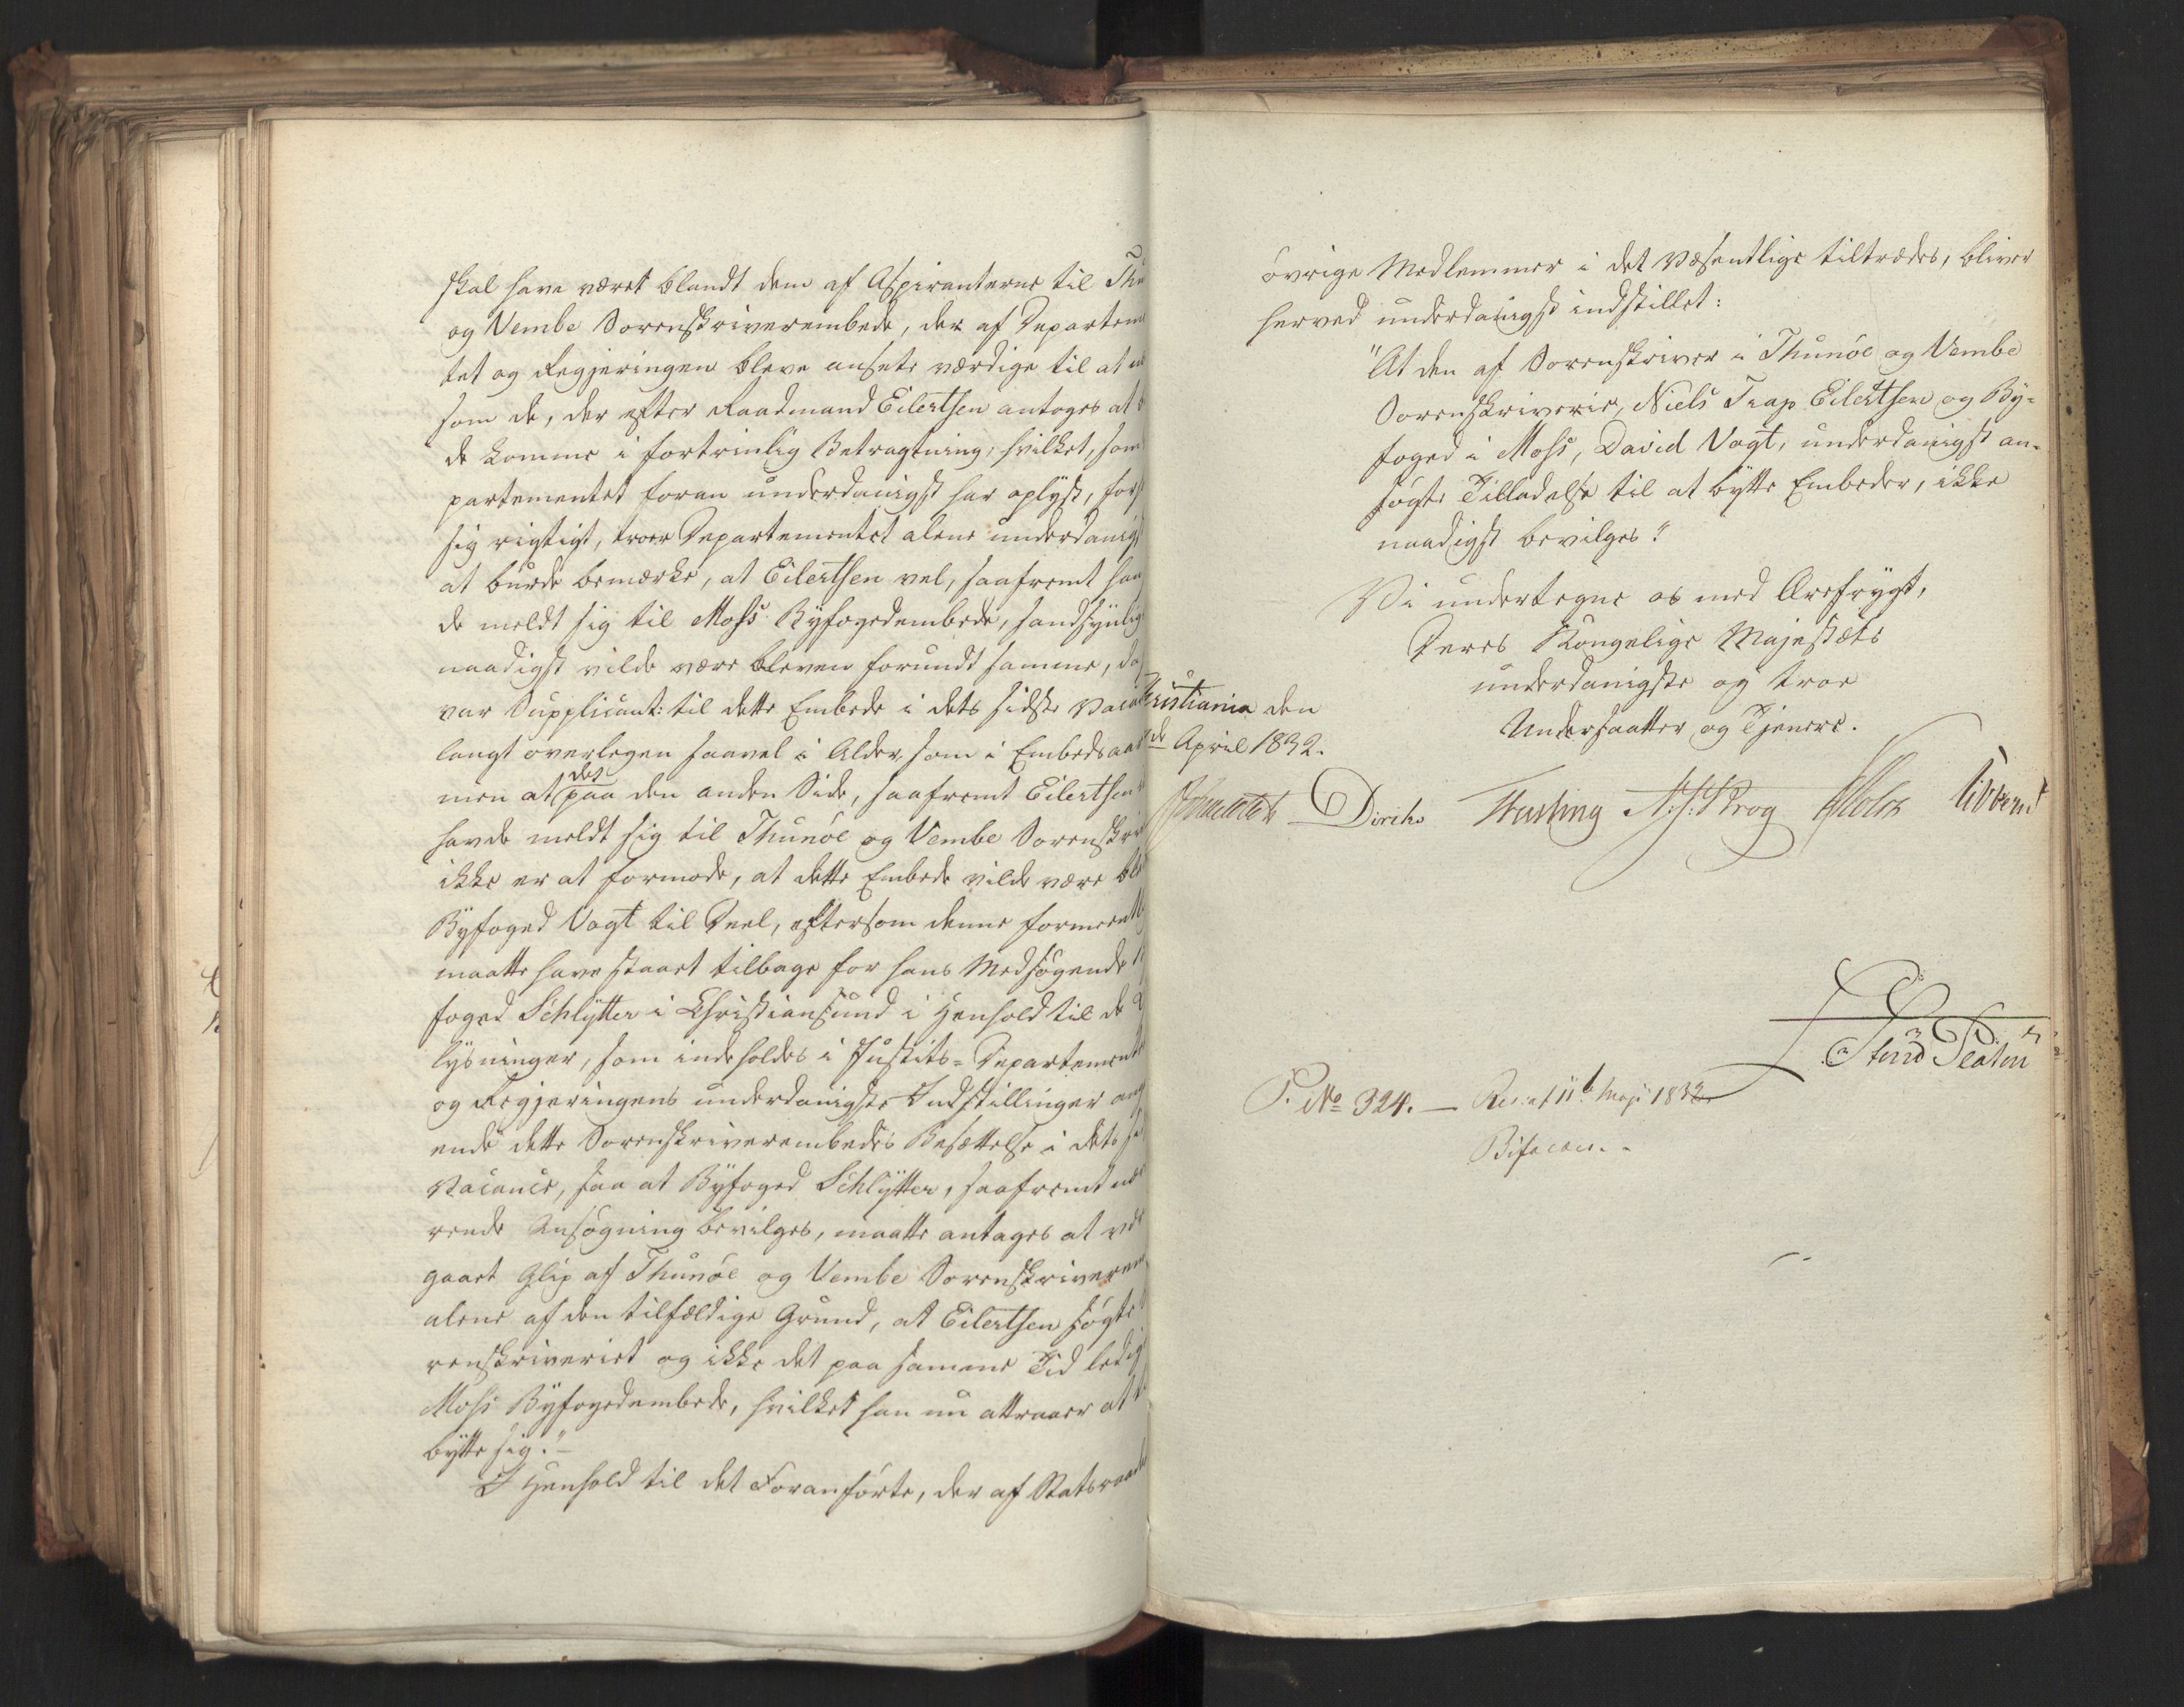 skal have været blandt dem af Aspiranterne til Thu
og Vembe Sorenskriverembede, der af Departem
tet og Regjeringen bleve ansete værdige til at
som de, der efter Raadmand Eilertsen antoges at
de komme i fortrinlig Betragtning, hvilket, som
partementet foran underdanigst har oplyst, for
sig rigtigt, troer Departementet alene underdanigst
at burde bemærke, at Eilertsen vel, saafremt han
de meldt sig til Moss Byfogedembede, sandsynlig
naadigst vilde være bleven forundt samme, da
var Supplicant: til dette Embede i dets sidste Vacan
langt overlegen saavel i Alder, som i Embedsaar
men at der paa den anden Side, saafremt Eilertsen
havde meldt sig til Thunöe og Vembe Sorenskri
ikke er at formode, at dette Embede vilde være ble
Byfoged Vogt til Deel, eftersom denne formeent
maatte have staaet tilbage for hans Medsøgende
foged Schlytter i Christiansund i Henhold til de
lysninger, som indeholdes i Justits-Departemente
og Regjeringens underdanigste Indstillinger ang
ende dette Sorenskriverembedes Besættelse i dets
Vacance, saa at Byfoged Schlytter, saafremt nær
rende Ansøgning bevilges, maatte antages at være
gaaet Glip af Thunöe og Vembe Sorenskriverem
alene af den tilfældige Grund, at Eilertsen søgte
renskriveriet og ikke det paa samme Tid ledig
Moss Byfogedembede, hvilket han nu attraaer at
bytte sig."
I Henhold til det Foranførte, der af Statsraadets
øvrige Medlemmer i det Væsentlige tiltrædes, bliver
herved underdanigst indstillet:
"At den af Sorenskriver i Thunöe og Vembe
Sorenskriverie, Niels Trap Eilertsen og By-
foged i Moss, David Vogt, underdanigst an-
søgte Tilladelse til at bytte Embeder, ikke
naadigst bevilges."
Vi undertegne os med Ærefrygt,
Deres Kongelige Majestæts
underdanigste og troe
Undersaatter og Tjenere.
Christiania den
April 1832.
Diriks Fasting A. S. Krog Holst Vibe
P. No 324. — Res: af 11te Maji 1832
Bifaldes.